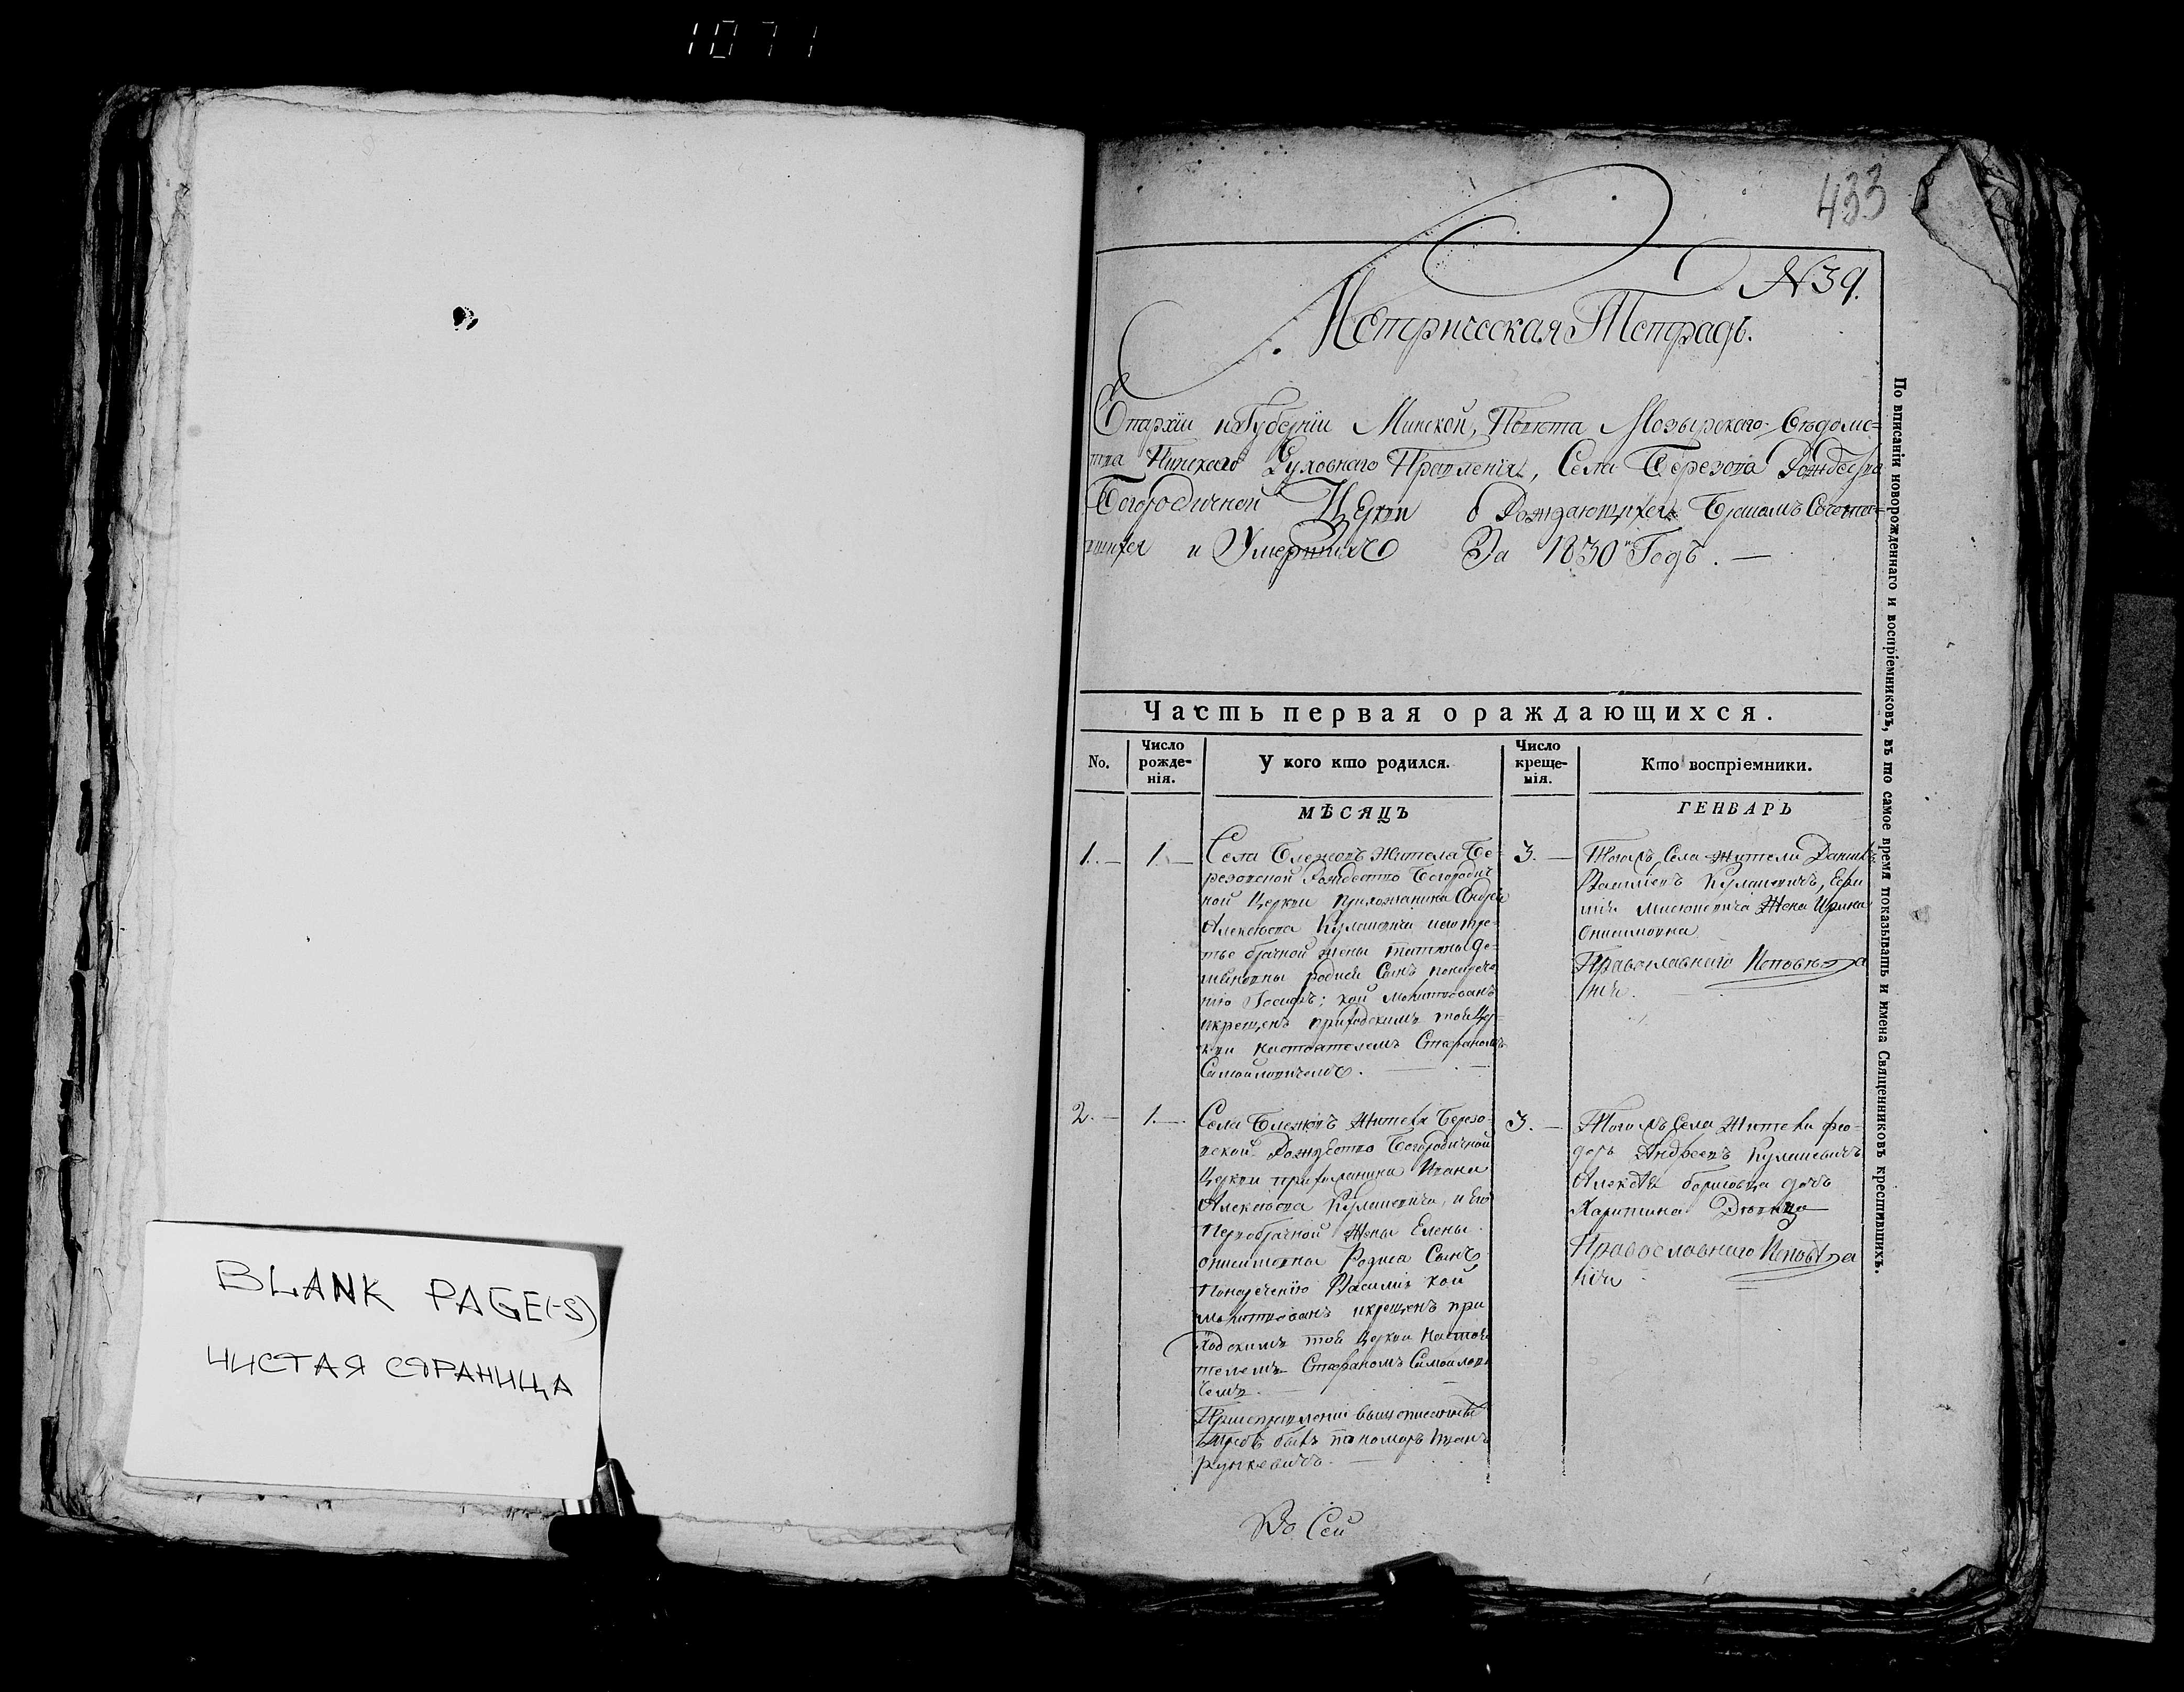 1071
BLANK PAGE(-S)
ЧИСТАЯ СТРАНИЦА
433
№ 39.
Метрическая Тетрадь.
Епархіи и Губерніи Минской, Повѣта Мозырскаго Вѣдомс=
тва Пинскаго Духовнаго Правленія, Села Березова Рождество
Богородичной Церкви о Рождающихся Бракомъ Сочетав=
шихся и Умершихъ За 1830й Годъ.
Часть первая о раждающихся.
No.
Число рожденія.
У кого кто родился.
Число крещенія.
Кто воспріемники.
МѢСЯЦЪ
ГЕНВАРЬ
1. 1.
Села жителя Бе=
резовской Рождество Богородич
ной Церкви прихожанина Андрея
Алексѣева Кулашевича его тре=
тье брачной жены
родися Сынъ понарече
нію Іосифъ; кой молитвованъ
икрещенъ приходскимъ той Цер=
кви Настоятелемъ Стефаномъ
Самойловичемъ.
3.
Тогожъ Села жители
Кулашевичъ,
Жена Ирина
Онисимовна
Православнаго Исповѣда
нія.
2. 1.
Села жителя Березо=
вской Рождество Богородичной
Церкви прихожанина Ивана
Алексѣева Кулашевича, и Его
Первобрачной Жены Елены
Родися Сынъ
Понаречению Василій кой
молитвованъ икрещенъ при
ходскимъ той Церкви Настоя
телемъ Стефаномъ Самойлови
чемъ.
былъ пономарь Иванъ
3.
Тогожъ Села Жители Фео=
доръ Андреевъ Кулашевичъ
Алексѣя дочь
Харитина Дѣвица
Православнаго Исповѣда
нія
По вписаніи новорожденнаго и воспріемниковъ, въ то самое время показывать и имена Священниковъ крестившихъ.